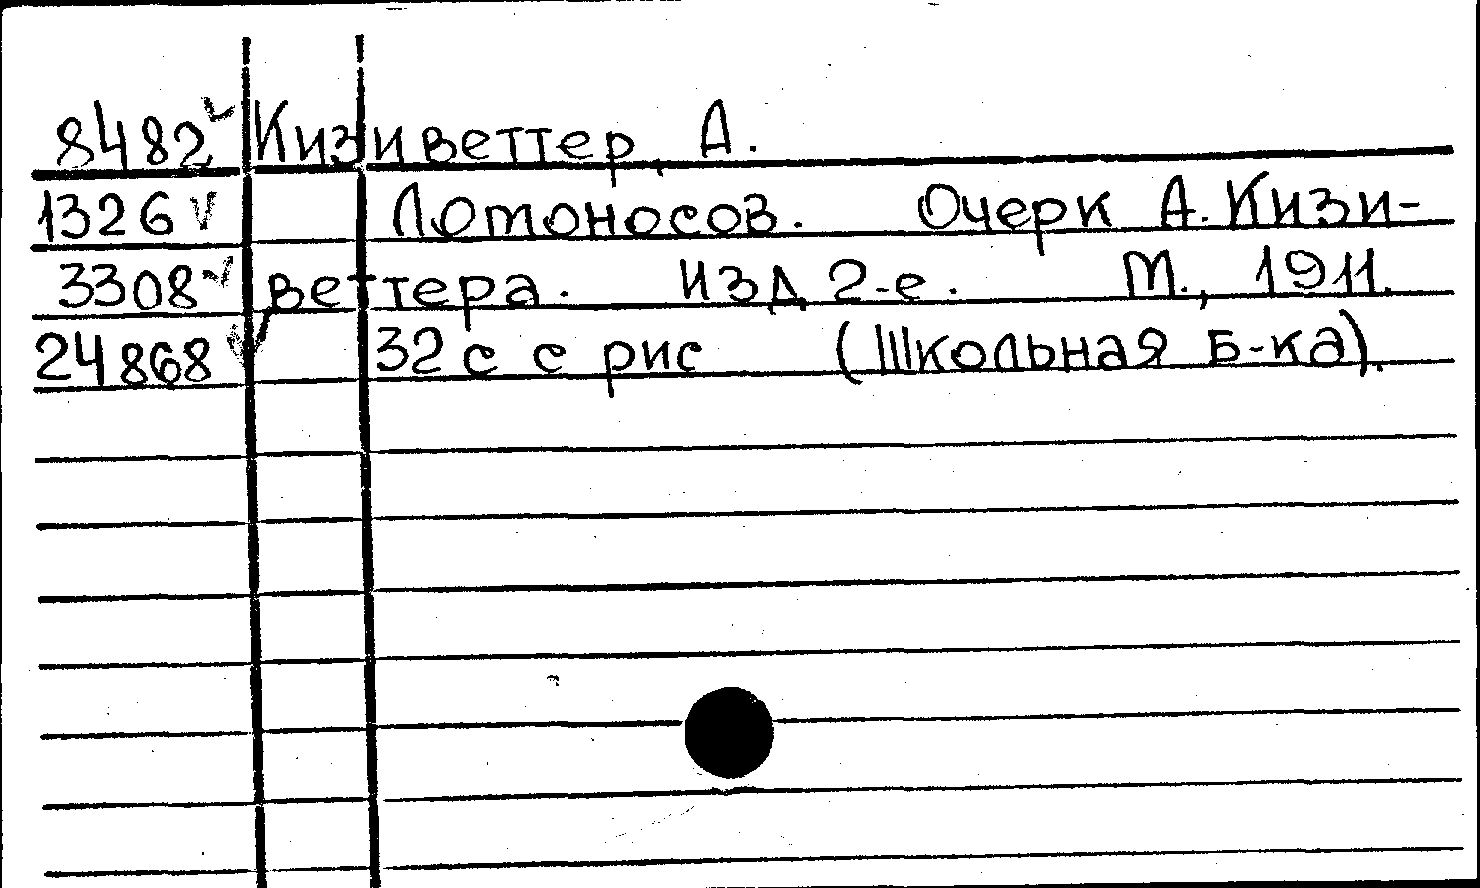 8482 ✓ Кизиветтер, А.
1326 ✓ Лотоносов. Очерк А. Кизи-
3308 ✓ веттера. Изд 2-е. М., 1911.
24868 ✓ 32 с с рис (Школьная б-ка).